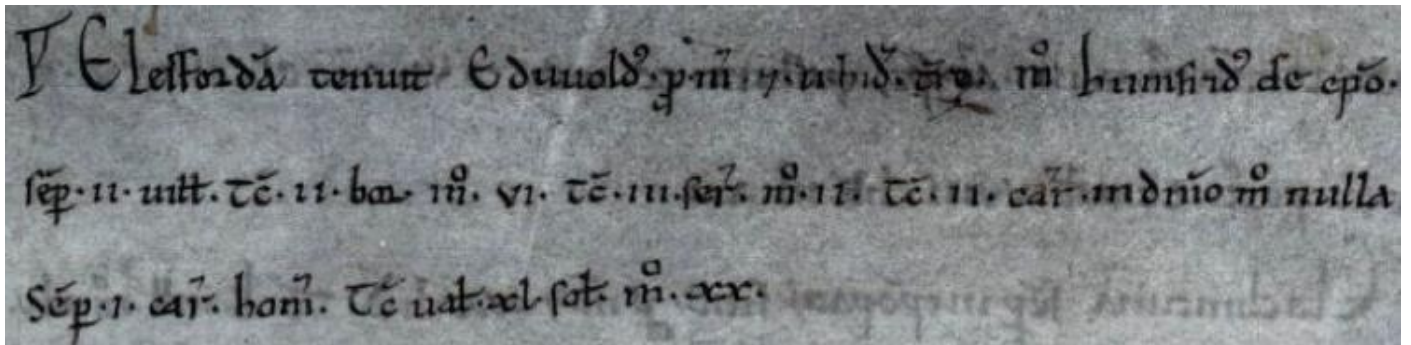 ⁊ Elesfordā tenuit Eduuoldꝰ ꝓ m̄ ⁊ ii hid̄. m̊ humfridꝰ de ep̄o.
sēp. ii. uilł. Tc̄. ii. bor. m̊. vi. Tc̄. iii. ser̄. m̊. ii. Tc̄. ii. car̄. in dn̄io m̊ nulla
Sēp. i. car̄. hom̄. Tc̄ uał. xl. soł. m̊. xx.